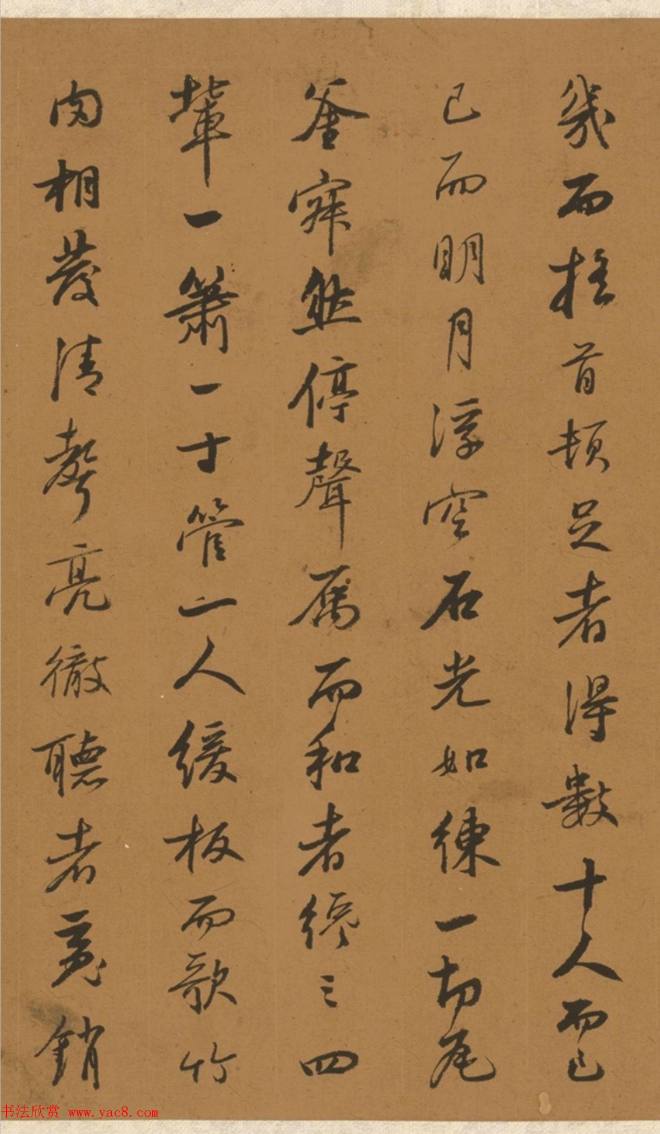 幾而搖首頓足者得數十人而已
已而明月浮空石光如練一切瓦
釜寂然停聲屬而和者纔三四
輩一簫一寸管一人緩板而歌竹
肉相發清聲亮徹聽者寛銷
书法欣赏 www.yac8.com